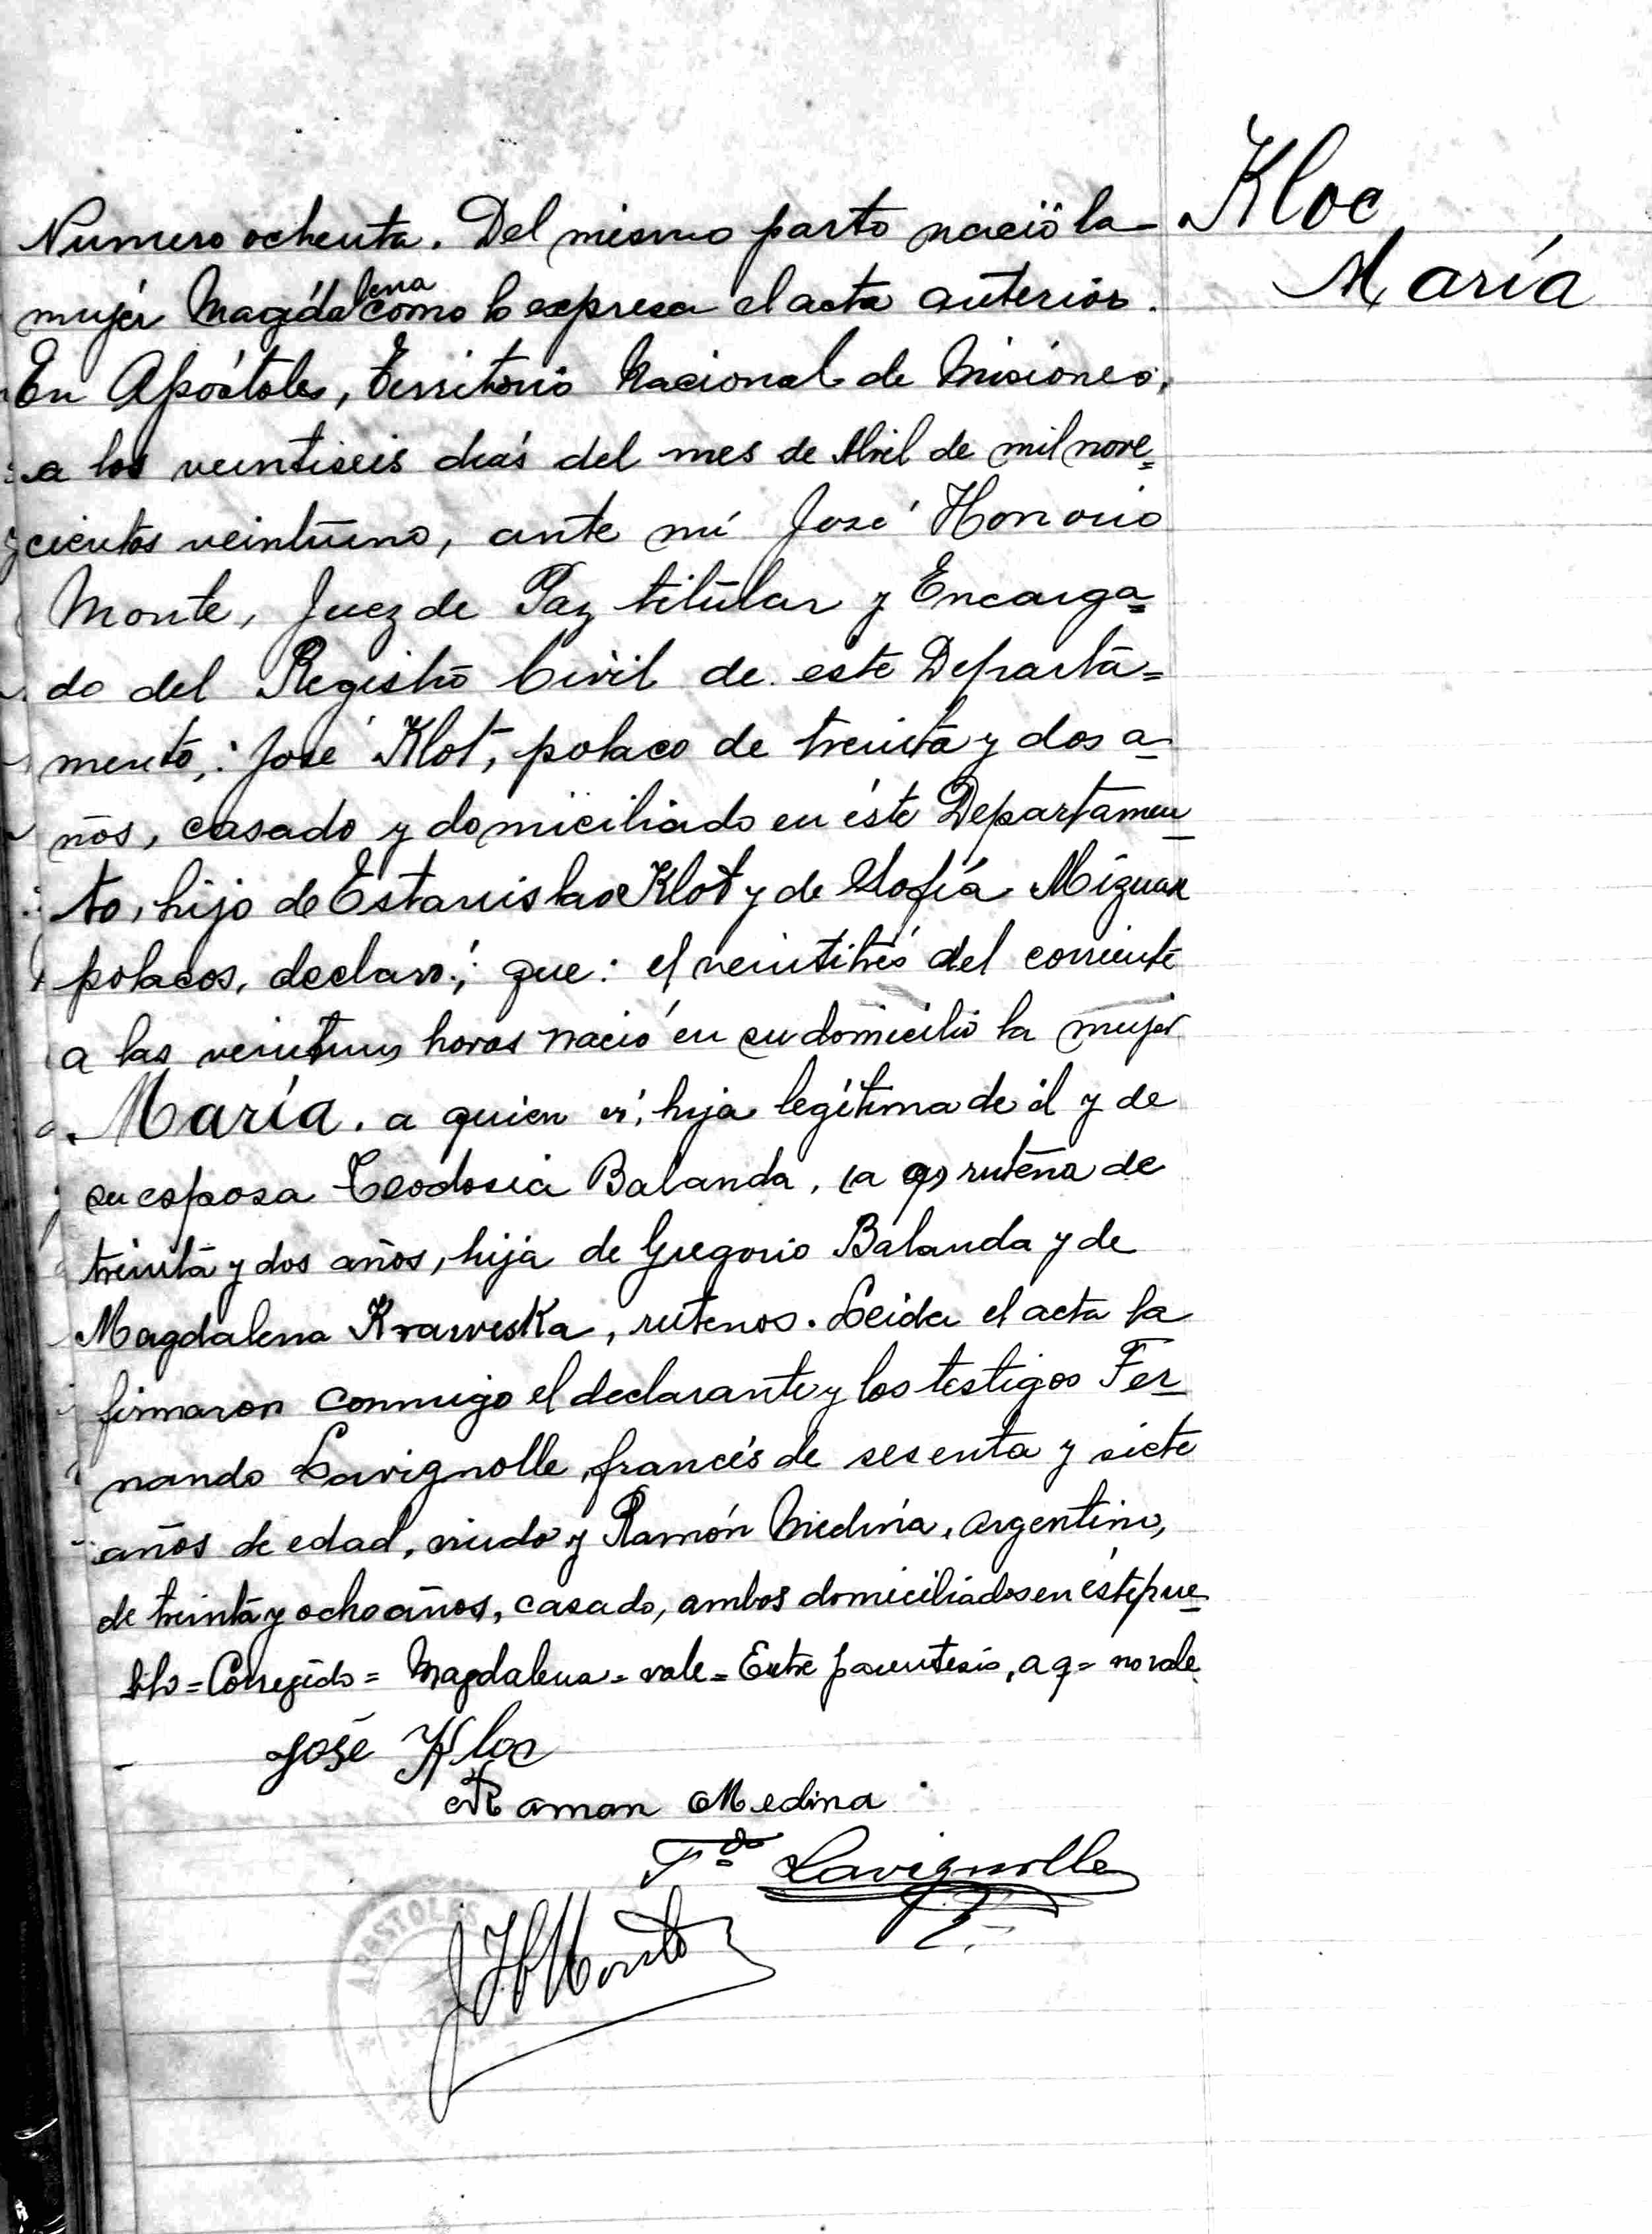 Kloc
María
Numero ochenta. Del mismo parto nació la
mujer Magdalena como lo expresa el acta anterior.
En Apóstoles, Territorio Nacional de Misiones,
a los veintiseis días del mes de Abril de mil nove=
cientos veintiuno, ante mí José Honorio
Monte, Juez de Paz titular y Encarga=
do del Registro Civil de este Departa=
mento,: José Klot, polaco de treinta y dos a-
ños, casado y domiciliado en éste Departamen-
to, hijo de Estanislao Klot y de Sofía
polacos, declaró; que: el veintitrés del corriente
a las veintiun horas nació en su domicilio la mujer
María. a quien ví, hija legítima de él y de
su esposa Teodosia Balanda, (a q) rutena de
treinta y dos años, hija de Gregorio Balanda y de
Magdalena Kraweska, rutenos. Leida el acta la
firmaron conmigo el declarante y los testigos Fer-
nando Lavignolle, francés de sesenta y siete
años de edad, viudo y Ramón Medina, argentino,
de treinta y ocho años, casado, ambos domiciliados en éste pue-
blo = Corregido = Magdalena = vale = Entre parentesis, a q = no vale
José Kloc
Ramon Medina
Fdo Lavignolle
JHMonte
APOSTOLES